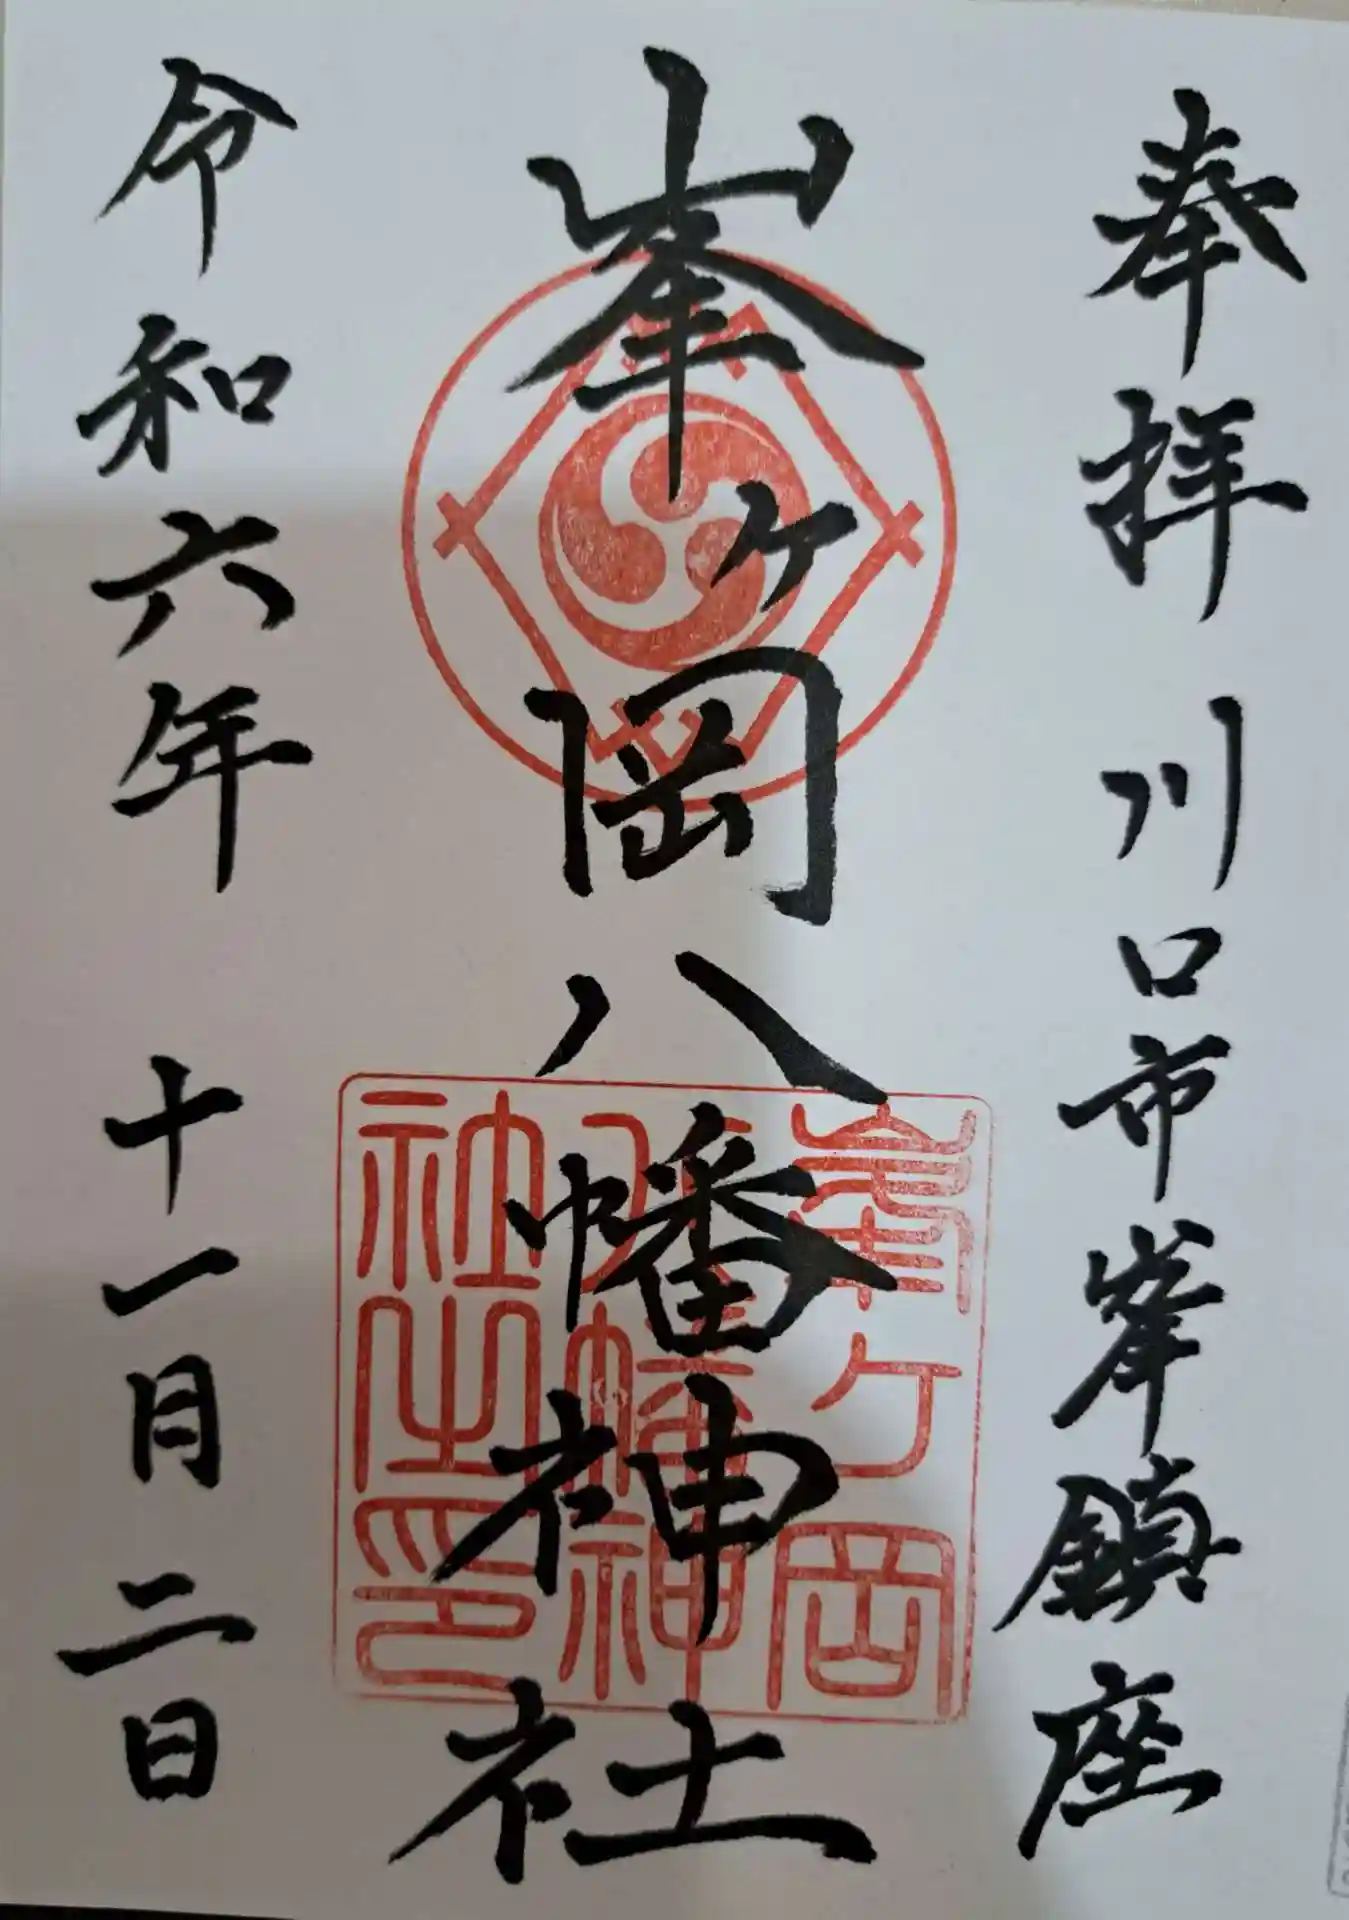 奉拝 川口市峯鎮座
峯ヶ岡八幡神社
令和六年 十一月二日
峯ヶ岡
八幡神
社之印